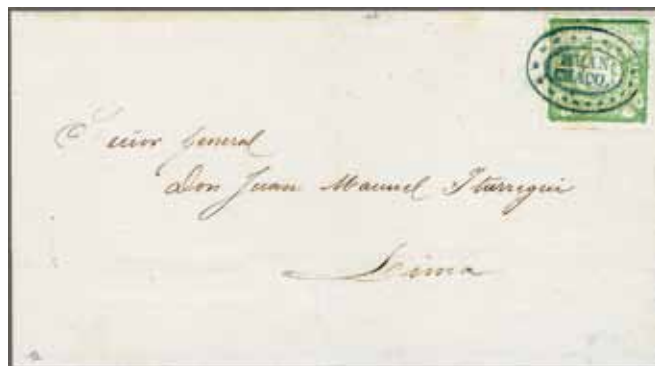 HUAN
CHACO.
Señor General
Don Juan Manuel Iturregui
Lima